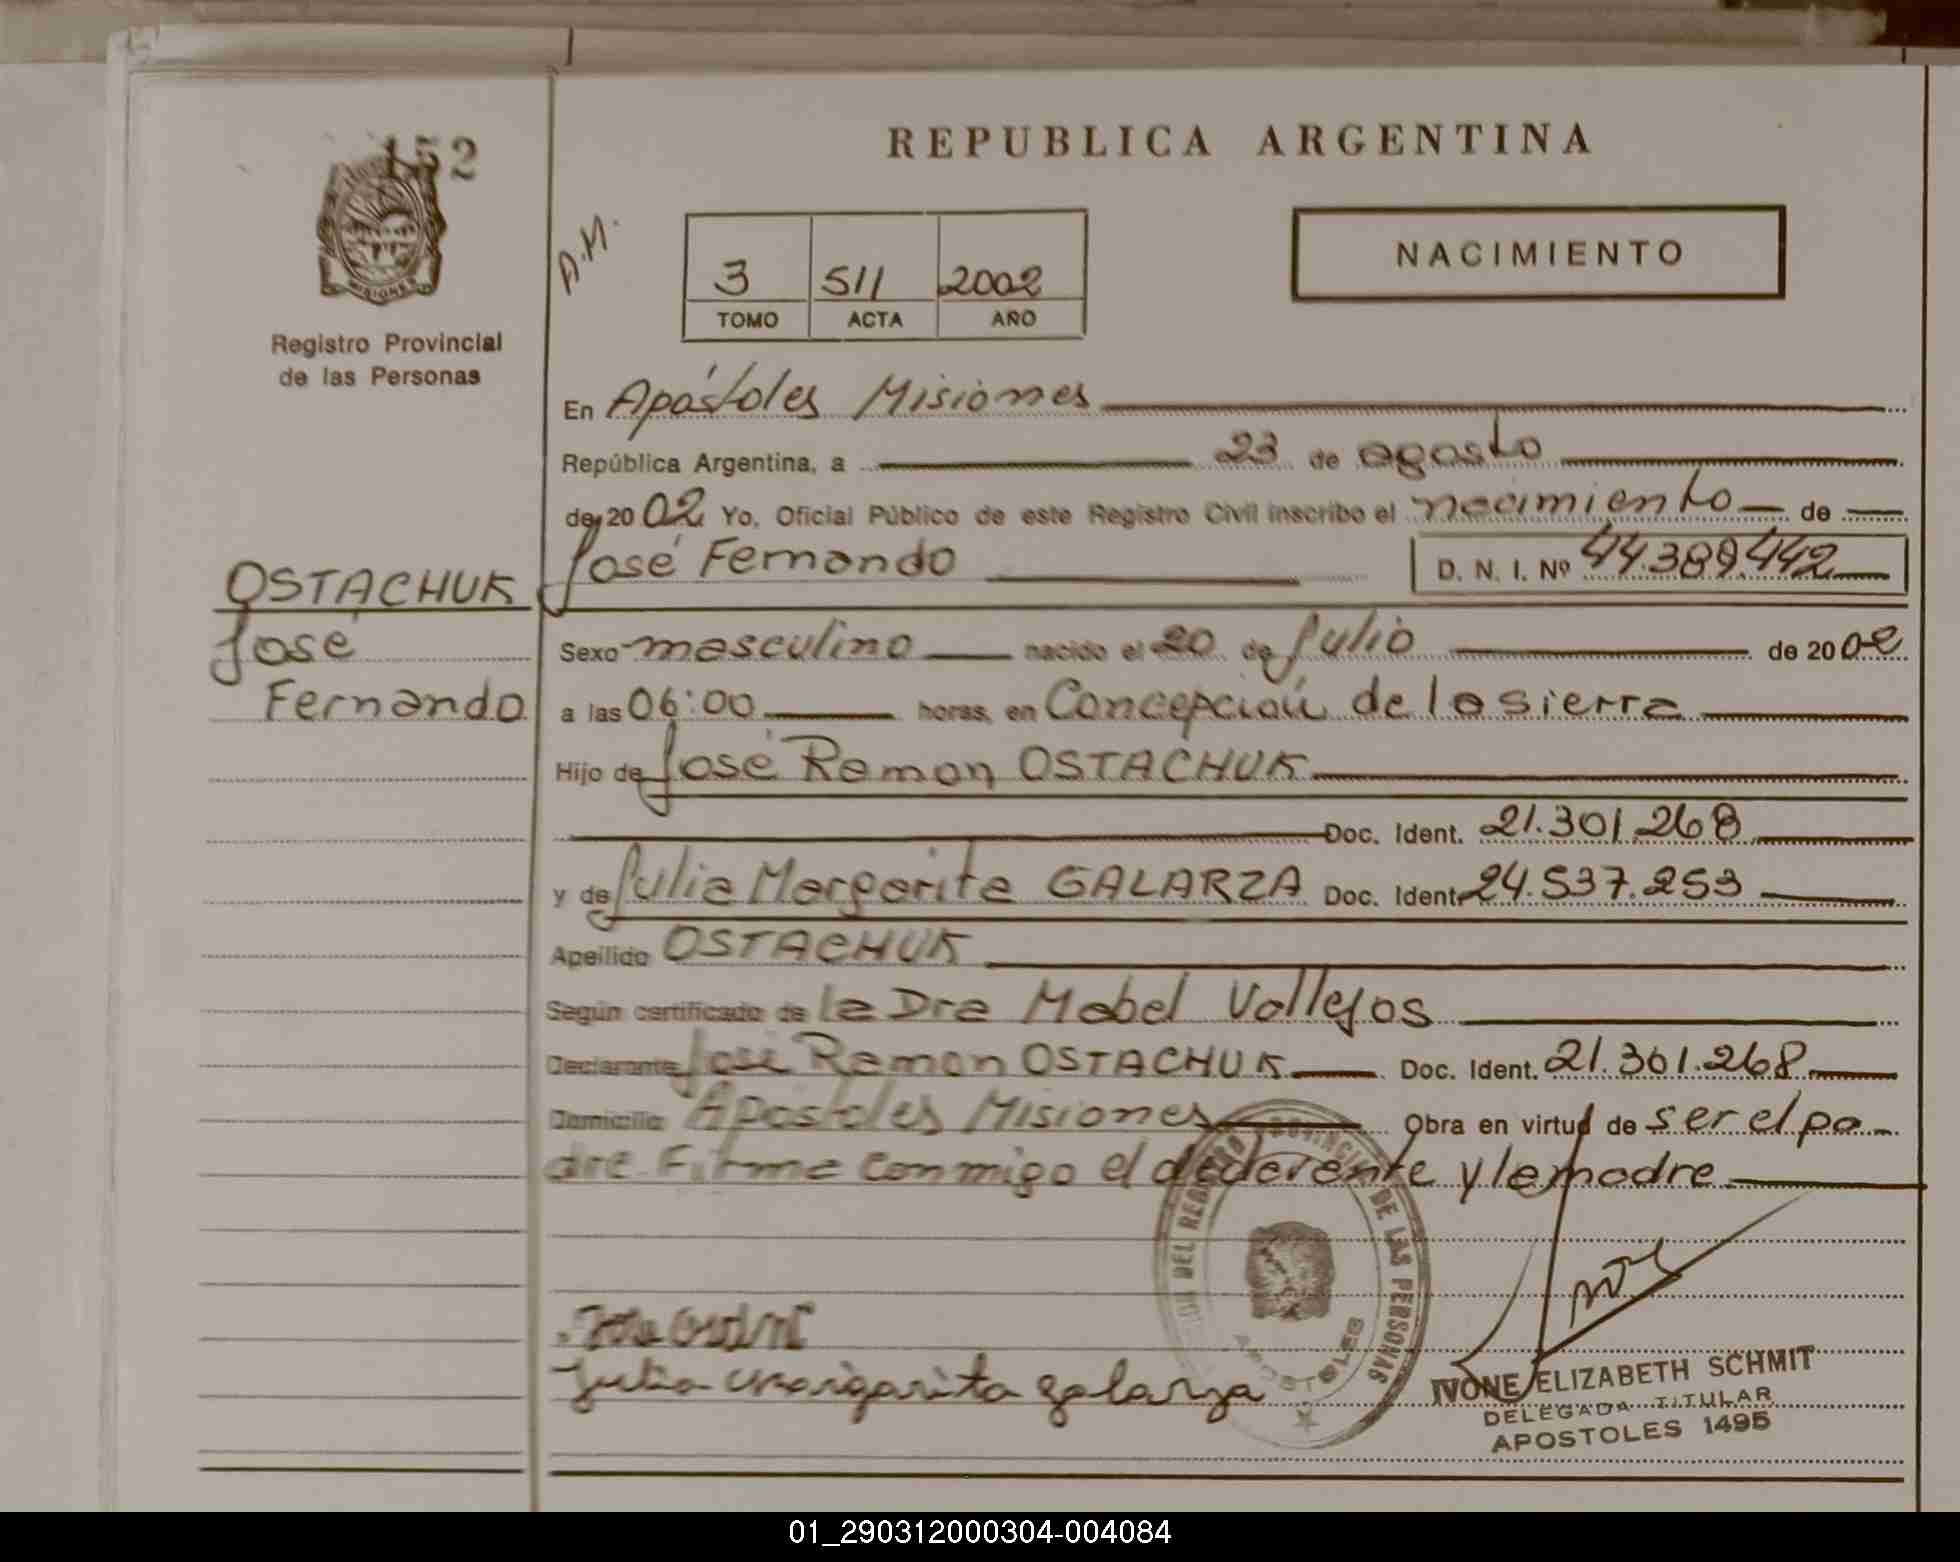 152
MISIONES
Registro Provincial
de las Personas
REPUBLICA ARGENTINA
A.M.
3 511 2002
TOMO ACTA AÑO
NACIMIENTO
En Apóstoles Misiones
República Argentina, a 23 de agosto
de 2002 Yo, Oficial Público de este Registro Civil inscribo el nacimiento de
José Fernando D. N. I. Nº 44.389.442
OSTACHUK
José
Fernando
Sexo masculino nacido el 20 de Julio de 2002
a las 06:00 horas, en Concepción de la sierra
Hijo de José Ramon OSTACHUK
Doc. Ident. 21.301.268
y de Julia Margarita GALARZA Doc. Ident. 24.537.253
Apellido OSTACHUK
Según certificado de la Dra Mabel Vallejos
Declarante José Ramon OSTACHUK Doc. Ident. 21.301.268
Domicilio Apostoles Misiones Obra en virtud de ser el pa-
dre Firma conmigo el declarante y la madre
DEL REGISTRO PROVINCIAL DE LAS PERSONAS
APOSTOLES
Julia Margarita galarza
IVONE ELIZABETH SCHMIT
DELEGADA TITULAR
APOSTOLES 1495
01_290312000304-004084